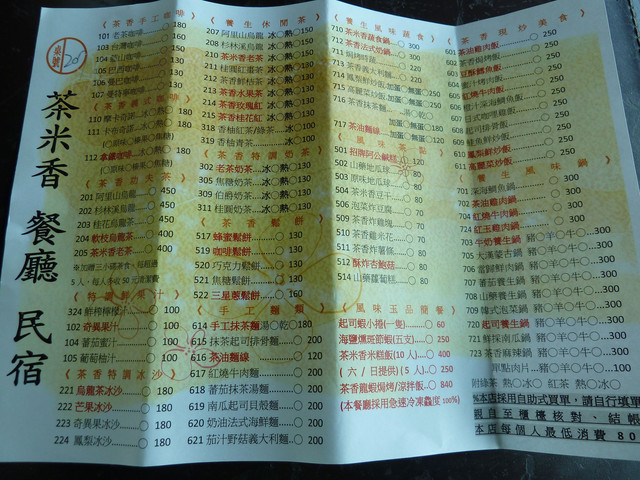 桌號 20
茶米香 餐廳 民宿
《茶香手工咖啡》
101 老茶咖啡 180
103 台灣咖啡 160
《茶香義式咖啡》
(○原味○糖果○焦糖)
112 拿鐵咖啡 180
(○原味○糖果○焦糖)
201 阿里山烏龍 450
202 杉林溪烏龍 450
203 桂花烏龍茶 450
204 軟枝烏龍茶 400
205 茶米香老茶 400
《特調鮮果汁》
324 鮮榨檸檬汁 100
102 奇異果汁 100
104 蕃茄蜜汁 100
105 葡萄柚汁 100
《茶香特調冰沙》
221 烏龍茶冰沙 180
222 芒果冰沙 180
223 奇異果冰沙 180
224 鳳梨冰沙 180
《養生休閒茶》
207 阿里山烏龍 冰○熱○ 150
208 杉林溪烏龍 冰○熱○ 150
210 茶米香老茶 冰○熱○ 130
211 桂圓紅棗茶 冰○熱○ 130
212 茶香鮮桔茶 冰○熱○ 130
213 茶香水果茶 冰○熱○ 130
214 茶香玫瑰紅 冰○熱○ 130
215 茶香桂花紅 冰○熱○ 130
318 香柚紅茶/綠茶 冰○ 100
319 香柚青茶 冰○ 100
《茶香特調奶茶》
302 老茶奶茶 冰○熱○ 130
305 焦糖奶茶 冰○熱○ 130
309 伯爵奶茶 冰○熱○ 130
311 桂圓奶茶 冰○熱○ 130
《茶香鬆餅》
517 蜂蜜鬆餅 130
519 咖啡鬆餅 130
520 巧克力鬆餅 130
521 焦糖鬆餅 130
522 三星蔥鬆餅 160
《手工麵類》
614 手工抹茶麵 湯○乾○ 180
615 抹茶起司排骨麵 200
616 茶油麵線 120
617 紅燒牛肉麵 200
618 蕃茄抹茶湯麵 200
619 南瓜起司貝殼麵 200
620 奶油法式海鮮麵 200
621 茄汁野菇義大利麵 200
《養生風味蔬食》
710 茶米香蔬食鍋 300
711 茶香法式奶鍋 300
713 茶香義大利麵
714 鳳梨鮮炒飯 加蛋○無蛋○ 250
715 高麗菜炒飯 加蛋○無蛋○ 250
716 茶香抹茶麵
717 茶油麵線 加蛋○無蛋○ 120
《風味茶點》
501 招牌阿公鹹糕 120
502 山藥地瓜球 80
503 原味地瓜球 80
504 茶米香豆干 80
506 泡菜百豆腐 80
509 茶香炸雞塊 70
510 茶香雞米花 70
511 茶香炸薯條 80
512 酥炸杏鮑菇 80
514 山藥蘿蔔糕 80
《風味玉品簡餐》
起司蝦小捲(一隻) 60
海鹽燻斑節蝦(五支) 250
茶米米糕甑(10人) 400
(六/日提供)(5人) 250
茶香龍蝦焗烤/涼拌飯 840
(本餐廳採用急速冷凍龜度 100%)
《茶香現炒美食》
601 茶油雞肉飯 250
茶香焗烤飯 250
豆酥鱈魚飯 250
蜜汁豬肉飯 250
紅燒牛肉飯 250
橙汁深海鯛魚飯 250
日式咖哩雞飯 250
起司排骨飯 250
鮭魚鮮炒飯 250
610 鳳梨鮮炒飯 250
611 高麗菜炒飯 250
《養生風味鍋》
701 深海鯛魚鍋 300
702 茶油雞肉鍋 300
704 紅燒牛肉鍋 300
724 紅玉雞肉鍋 300
703 牛奶養生鍋 豬○羊○牛○ 300
705 大漠蒙古鍋 豬○羊○牛○ 300
706 當歸鮮肉鍋 豬○羊○牛○ 300
707 十全養生鍋 豬○羊○牛○ 300
708 山藥養生鍋 豬○羊○牛○ 300
709 韓式泡菜鍋 豬○羊○牛○ 300
720 起司養生鍋 豬○羊○牛○ 300
721 鮮採南瓜鍋 豬○羊○牛○ 300
723 茶香麻辣鍋 豬○羊○牛○ 300
單點肉片 豬○羊○牛○ 100
附綠茶 熱○冰○ 紅茶 熱○冰○
※本店採用自助式買單，請自行填單
親自至櫃檯核對、結帳
本店每個人最低消費 80